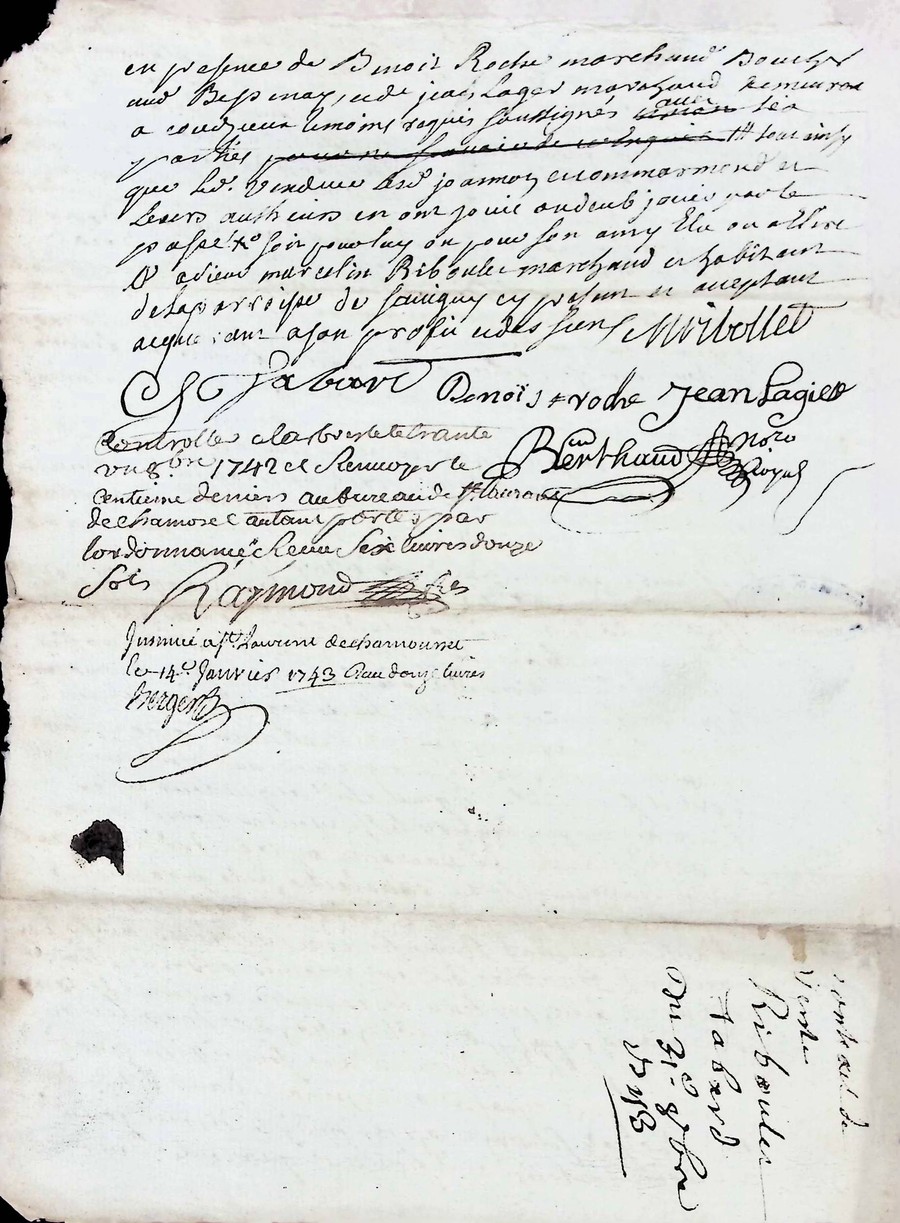 en presence de Benoit Roche marchand Boucher
aud Bessenay, et de jean Lager marchand demeurant
a couzieux temoins requis soussignés avec les
parties
que led. vendeur led. joannon et commarmond et
leurs autheurs en ont jouit ou deub jouir par le
passé soit pour luy ou pour son amy Elu ou a Elire
a sieur marcelin Riboulet marchand et habitant
de la parroisse de savigny cy present et acceptant
acquerant a son profit et des siens MRibollet
Tabard Benoist roche Jean Lagier
Controllé a Labresle le trante
un 8bre 1742 et Renvoyé le
centieme deniers au bureau de St laurans
de chamousset autant porté par
lordonnance Receu Six livres douze
Sols Raymond
Berthaud Nore
Royal
Insinué a St. Laurent de chamousset
le 14e Janvier 1743 Reçu douze livres
Berger
contract de
Vente
Riboulet
Tabard
Du 31e 8bre
1742